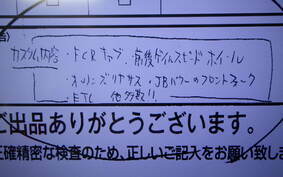 名)
カスタム内容 ・FCRキャブ 前後ダイムスモンド ホイール
・オーリンズリヤサス ・JBパワーのフロントフォーク
・ETC 他多数!!
ご出品ありがとうございます。
正確精密な検査のため、正しいご記入をお願い致しま